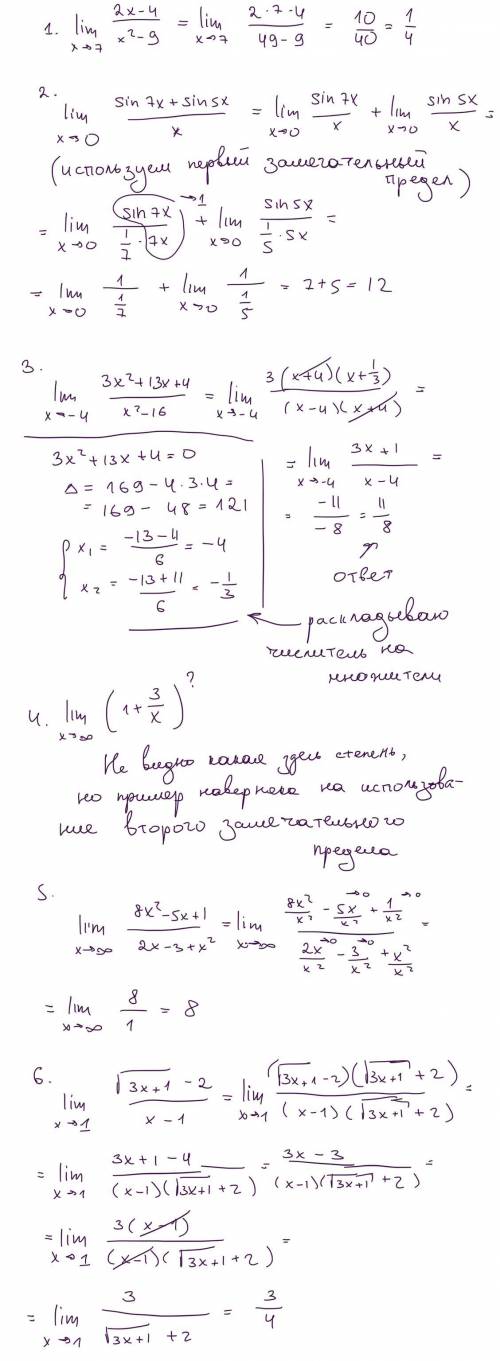 1. lim x→7 (2x-4)/(x²-9) = lim x→7 (2·7-4)/(49-9) = 10/40 = 1/4
2. lim x→0 (sin 7x + sin 5x)/x = lim x→0 sin 7x/x + lim x→0 sin 5x/x =
(используем первый замечательный
предел)
= lim x→0 sin 7x/(1/7 · 7x) →1 + lim x→0 sin 5x/(1/5 · 5x) =
= lim x→0 1/(1/7) + lim x→0 1/(1/5) = 7+5 = 12
3. lim x→-4 (3x²+13x+4)/(x²-16) = lim x→-4 3(x+4)(x+1/3)/((x-4)(x+4)) =
3x²+13x+4=0
Δ = 169-4·3·4=
= 169-48 = 121
x₁ = (-13-4)/6 = -4
x₂ = (-13+11)/6 = -1/3
= lim x→-4 (3x+1)/(x-4) =
= -11/-8 = 11/8
↑
ответ
← раскладываю
числитель на
множители
4. lim x→∞ (1+3/x)^?
Не видно какая здесь степень,
но пример навернека на использова-
ние второго замечательного
предела
5. lim x→∞ (8x²-5x+1)/(2x-3+x²) = lim x→∞ (8x²/x² - 5x/x² →0 + 1/x² →0)/(2x/x² →0 - 3/x² →0 + x²/x²) =
= lim x→∞ 8/1 = 8
6. lim x→1 (√(3x+1) - 2)/(x-1) = lim x→1 (√(3x+1) - 2)(√(3x+1) + 2)/((x-1)(√(3x+1) + 2)) =
= lim x→1 (3x+1-4)/((x-1)(√(3x+1) + 2)) = (3x-3)/((x-1)(√(3x+1) + 2)) =
= lim x→1 3(x-1)/((x-1)(√(3x+1) + 2)) =
= lim x→1 3/(√(3x+1) + 2) = 3/4